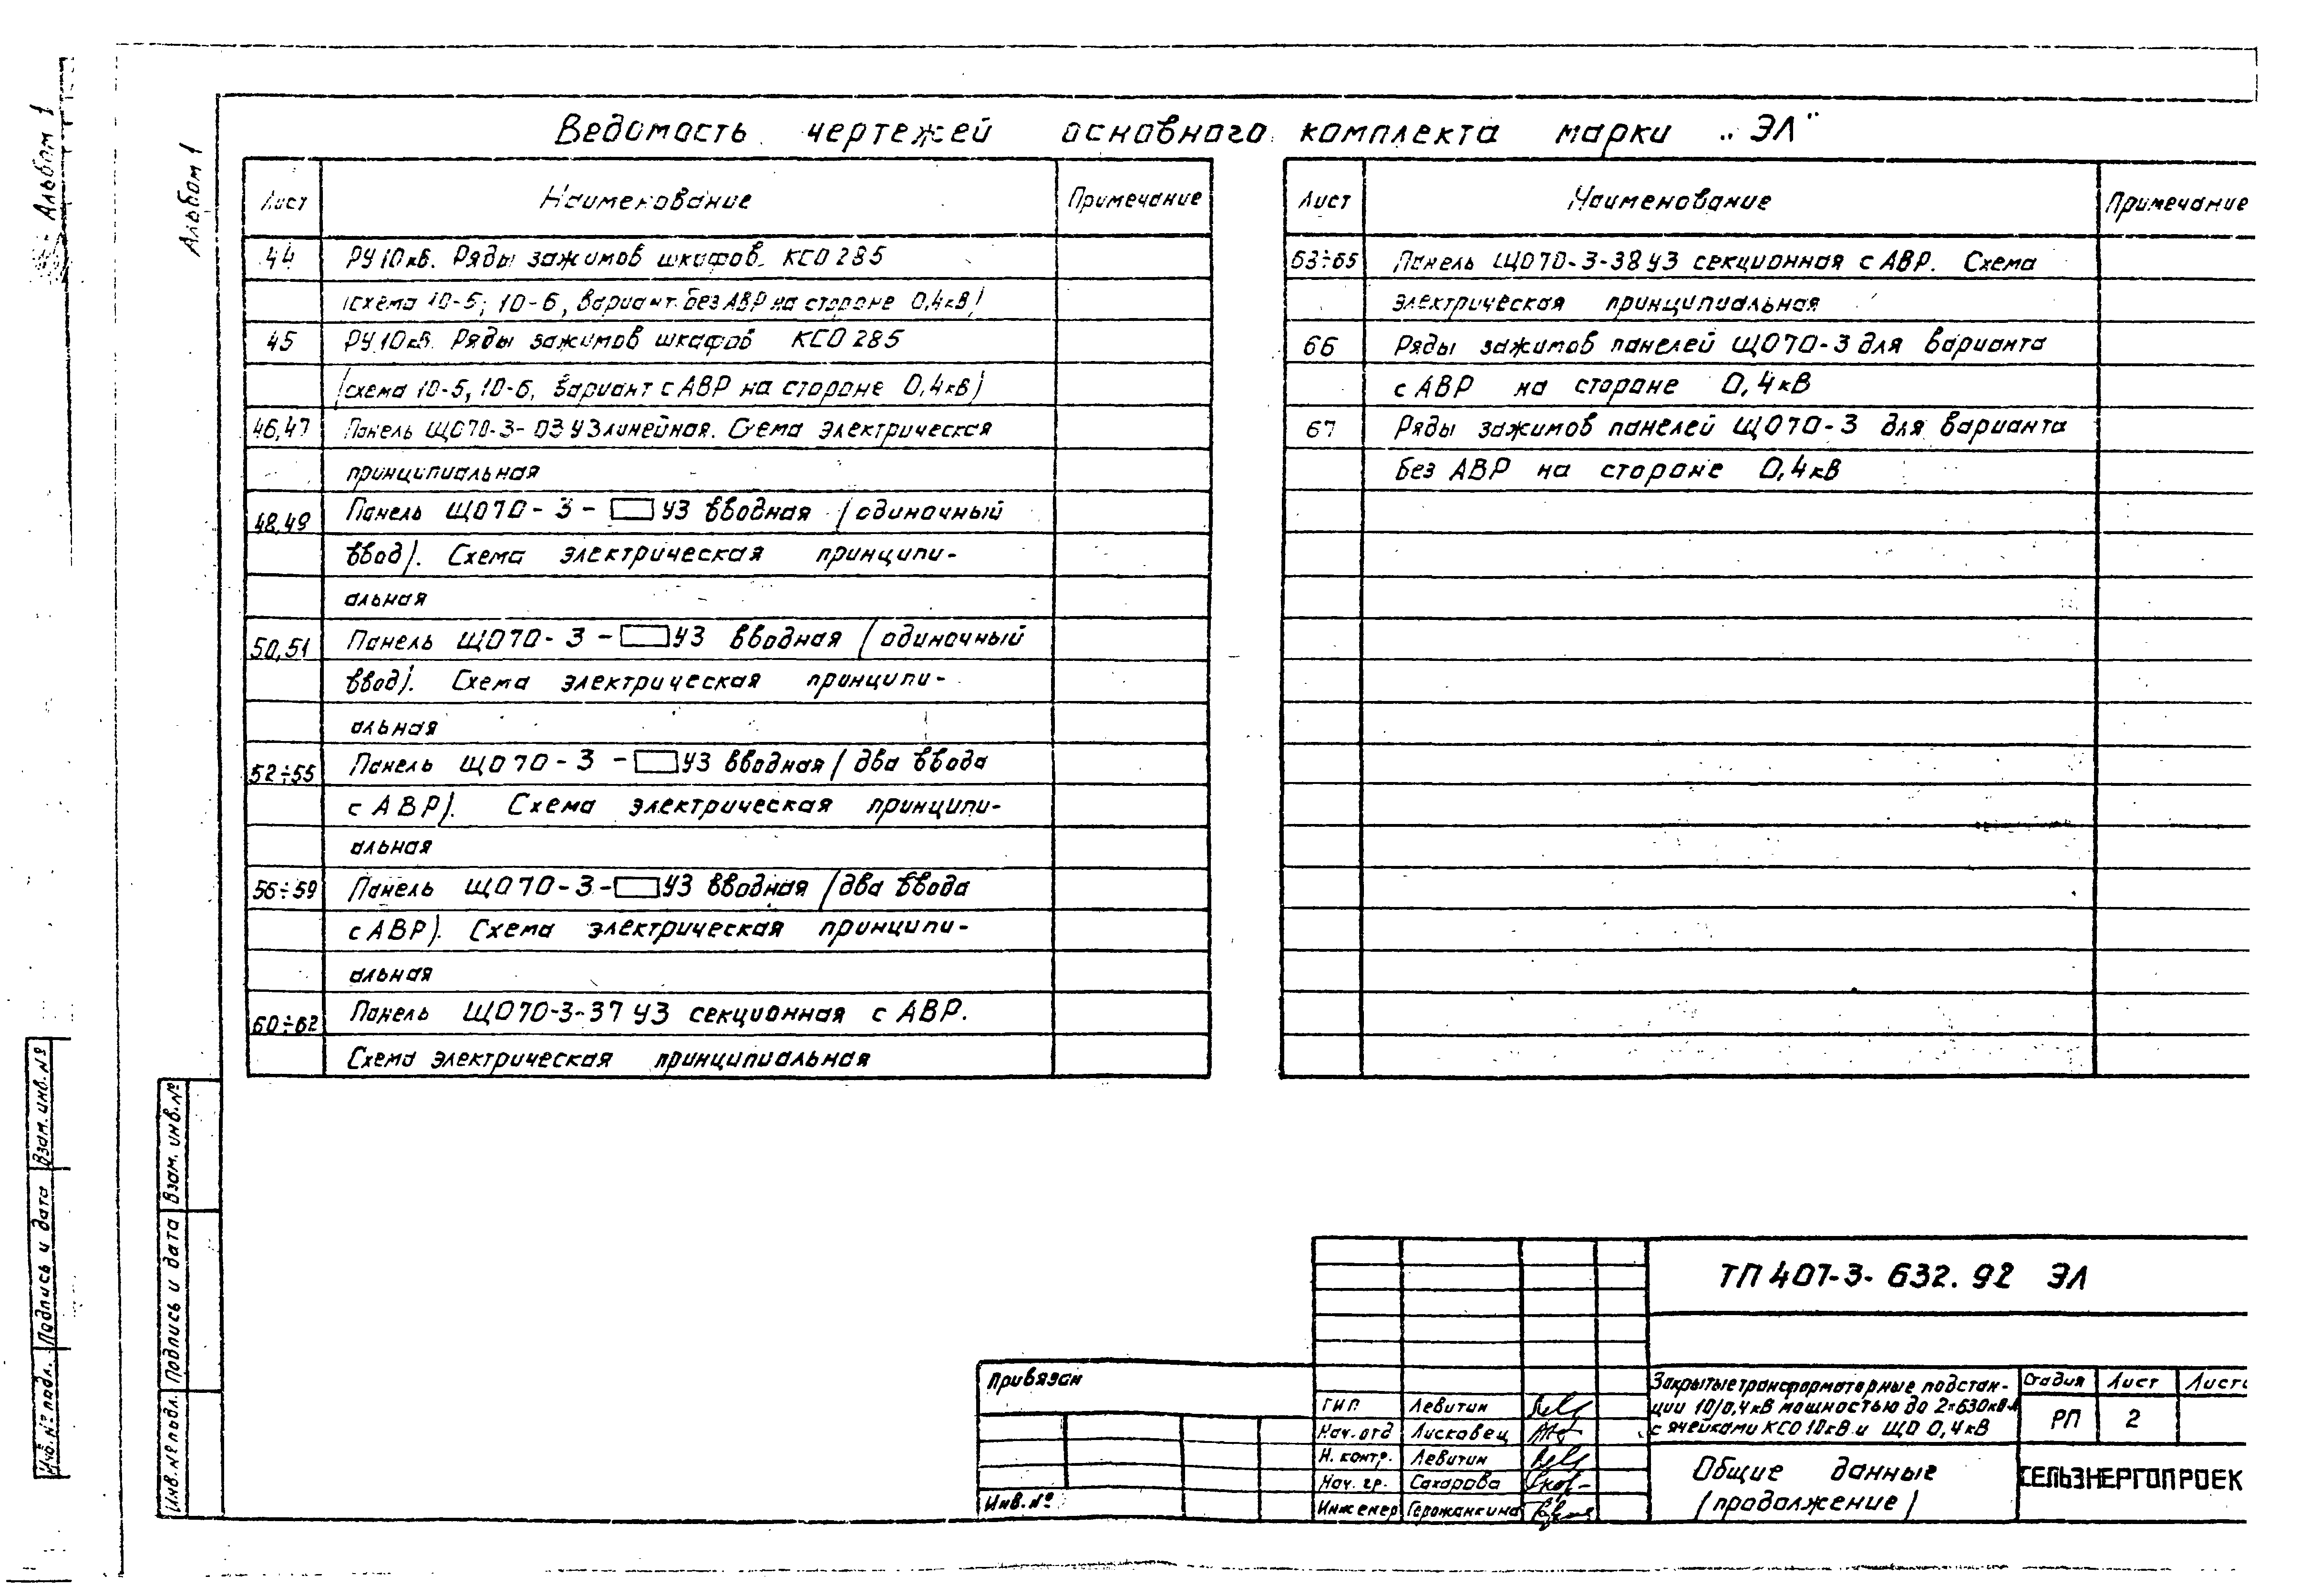 Альбом 1
Альбом 1
Ведомость чертежей основного комплекта марки „ЭЛ"
Лист Наименование Примечание
44 РУ10кВ. Ряды зажимов шкафов КСО 285
(схема 10-5; 10-6, вариант без АВР на стороне 0,4кВ)
45 РУ10кВ. Ряды зажимов шкафов КСО 285
(схема 10-5, 10-6, вариант с АВР на стороне 0,4кВ)
46,47 Панель ЩО70-3-03У3 линейная. Схема электрическая
принципиальная
48,49 Панель ЩО70-3-▭У3 вводная (одиночный
ввод). Схема электрическая принципи-
альная
50,51 Панель ЩО70-3-▭У3 вводная (одиночный
ввод). Схема электрическая принципи-
альная
52÷55 Панель ЩО70-3-▭У3 вводная (два ввода
с АВР). Схема электрическая принципи-
альная
56÷59 Панель ЩО70-3-▭У3 вводная (два ввода
с АВР). Схема электрическая принципи-
альная
60÷62 Панель ЩО70-3-37У3 секционная с АВР.
Схема электрическая принципиальная
Лист Наименование Примечание
63÷65 Панель ЩО70-3-38У3 секционная с АВР. Схема
электрическая принципиальная
66 Ряды зажимов панелей ЩО70-3 для варианта
с АВР на стороне 0,4кВ
67 Ряды зажимов панелей ЩО70-3 для варианта
без АВР на стороне 0,4кВ
Инв.№ подл. Подпись и дата Взам.инв.№
Инв.№ подл. Подпись и дата Взам.инв.№
Привязан
Инв.№
ТП 407-3-632.92 ЭЛ
ГИП Левитин
Нач.отд Лисковец
Н.контр. Левитин
Нач.гр. Сахарова
Инженер Герожанкина
Закрытые трансформаторные подстан-
ции 10/0,4кВ мощностью до 2×630кВА
с ячейками КСО 10кВ и ЩО 0,4кВ
Стадия Лист Листо
РП 2
Общие данные
(продолжение)
СЕЛЬЭНЕРГОПРОЕК